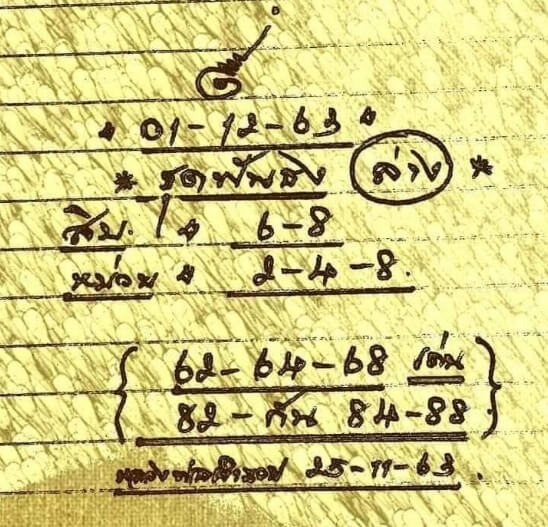 01-12-63
* ชุดฟันธง ล่าง *
สิบ. 6-8
หน่วย 2-4-8.
{ 62-64-68 เด่น }
82-กัน 84-88
25-11-63.